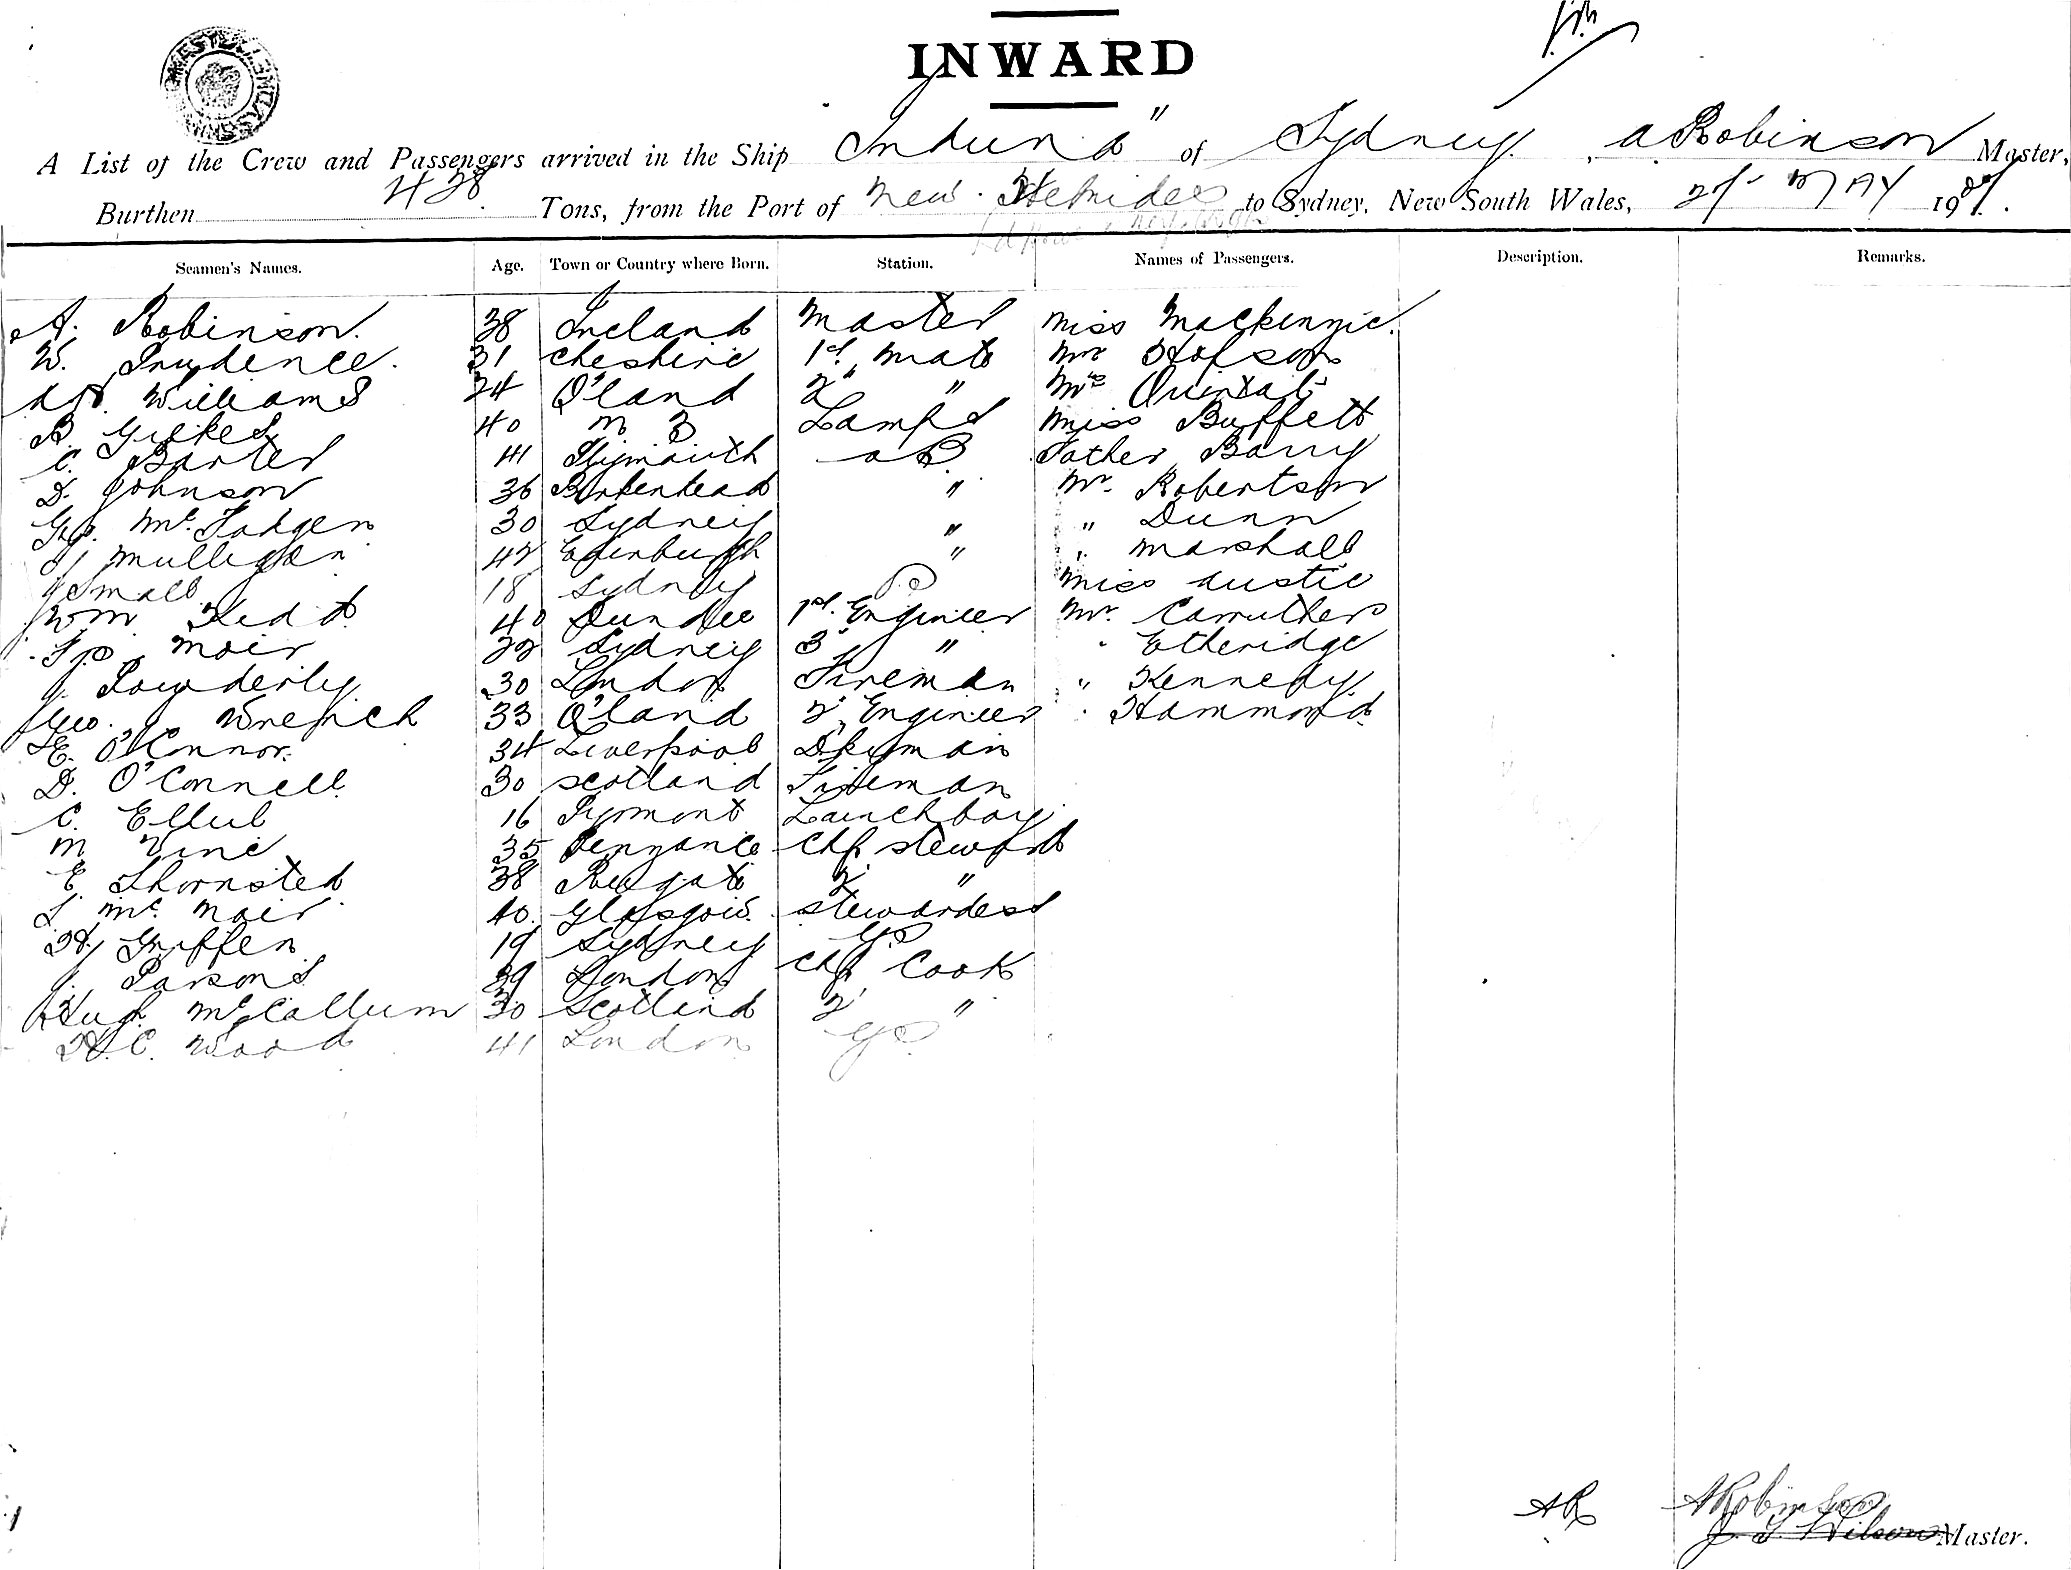 INWARD
A List of the Crew and Passengers arrived in the Ship "Induna" of Sydney, A Robinson Master,
Burthen 438 Tons, from the Port of New Hebrides to Sydney, New South Wales, MAY 190
Seamen's Names. Age. Town or Country where Born. Station. Names of Passengers. Description. Remarks.
A. Robinson. 38 Ireland Master Miss Mackenzie.
W. Prudence. 31 Cheshire 1st Mate Mr Hopson
Williams 24 Q'land 2 " Mrs Quintal
B. Gilkes 40 N Z Lamps Miss Buffett
C. Barter 41 Plymouth AB Father Barry
D. Johnson 36 Birkenhead " Mr. Robertson
Geo. Mc 30 Sydney " " Dunn
J Mulligan 42 Edinburgh " " Marshall
J Small 18 Sydney Miss Austie
Wm Kidd 40 Dundee 1st. Engineer Mr. Carruthers
Moir 22 Sydney 3 " Etheridge
J. Powderly 30 London Fireman " Kennedy.
Geo. J Wrench 33 Q'land 2 Engineer " Hammond
E. O'Connor. 34 Liverpool Dkyman
D. O'Connell 30 Scotland Fireman
C. Ellul 16 Pyrmont Launchboy
M Vine 35 Penzance Chf Steward
E. Thornsted 38 Reigate 2 "
L Mc Nair 40 Glasgow. Stewardess
Hy Griffen 19 Sydney GS
J. Parsons 39 London Chf Cook
Hugh McCallum 30 Scotland 2 "
H.C. Wood 41 London GS
AR A Robinson
J. G. Wilson Master.